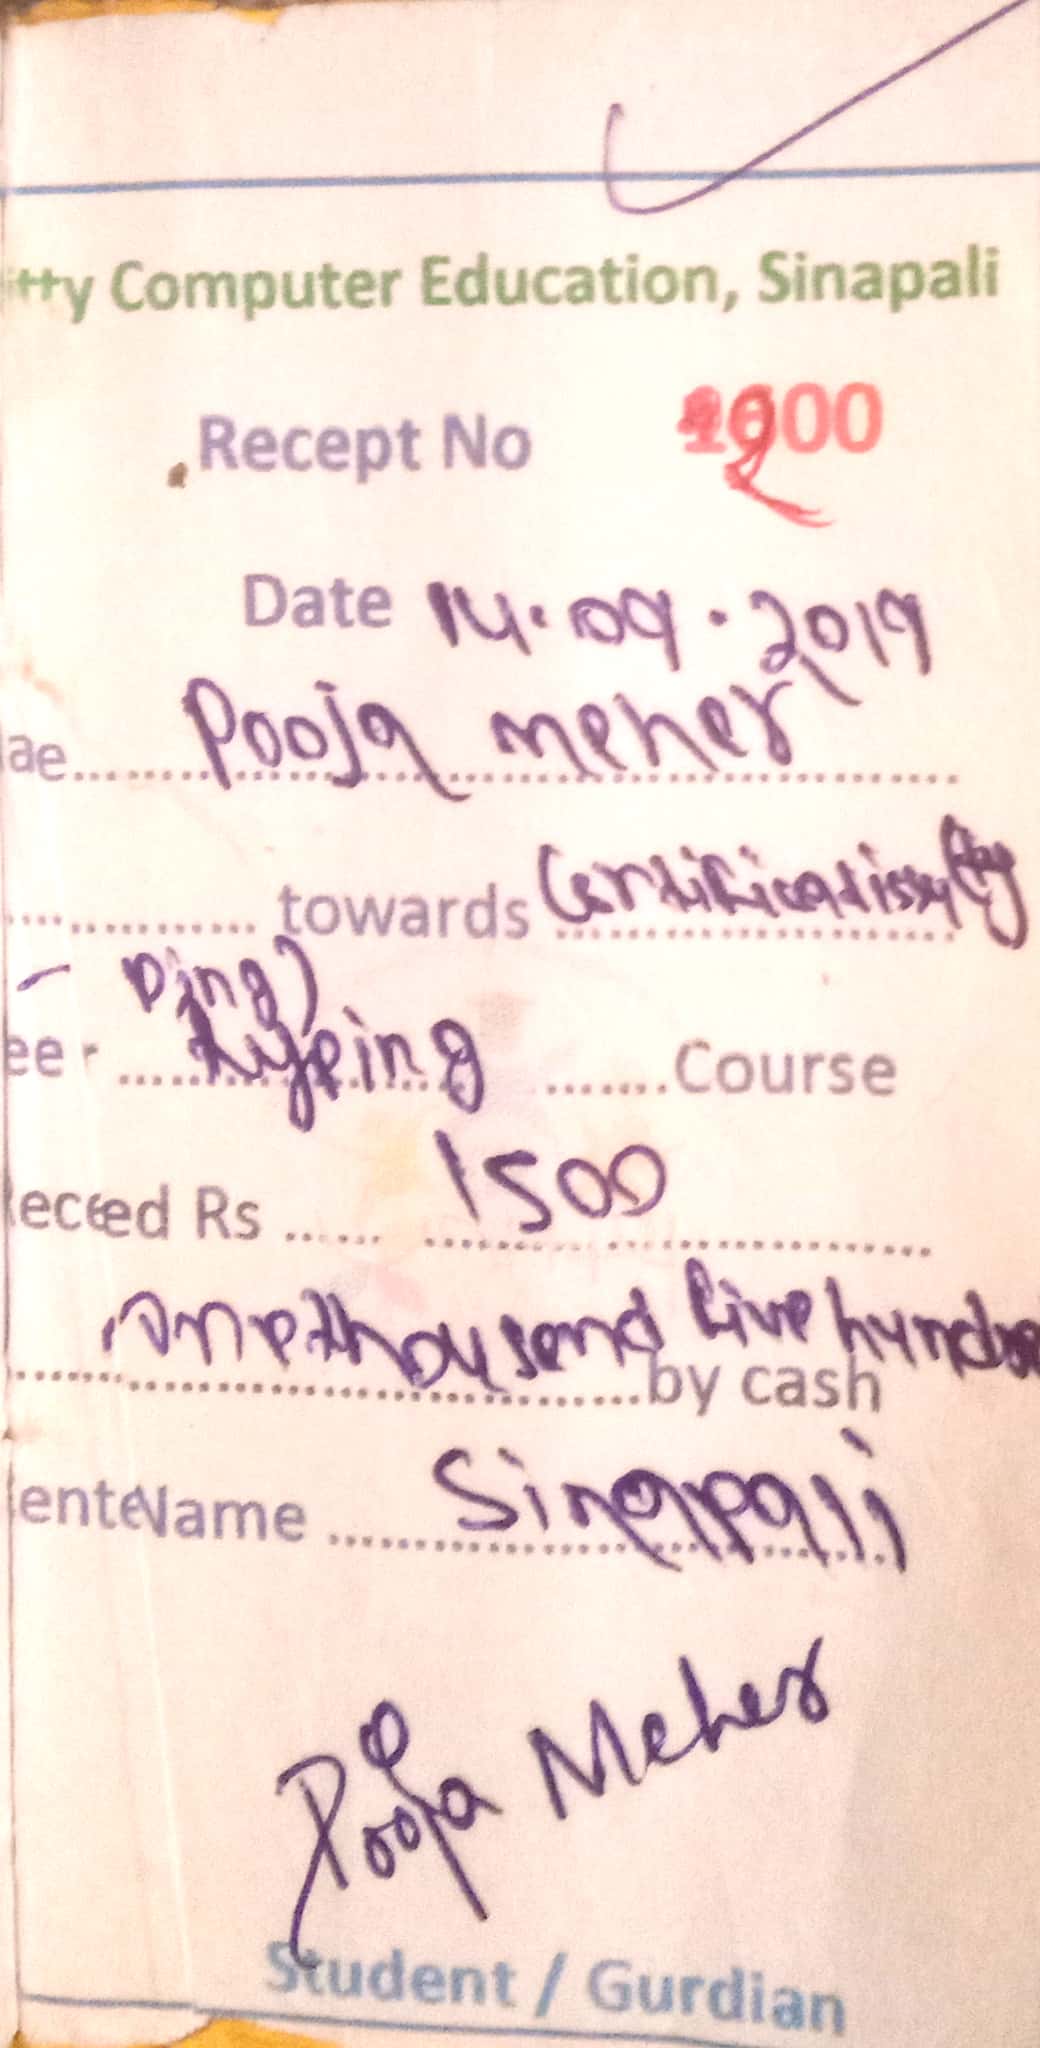 itty Computer Education, Sinapali
Recept No
Date 14.09.2019
ae.......... Pooja meher
............ towards
ee - typing .......Course
lected Rs ...... 1500
onethousend five hundre
.....................by cash
enteName ...... Sinapali
Pooja Meher
Student / Gurdian